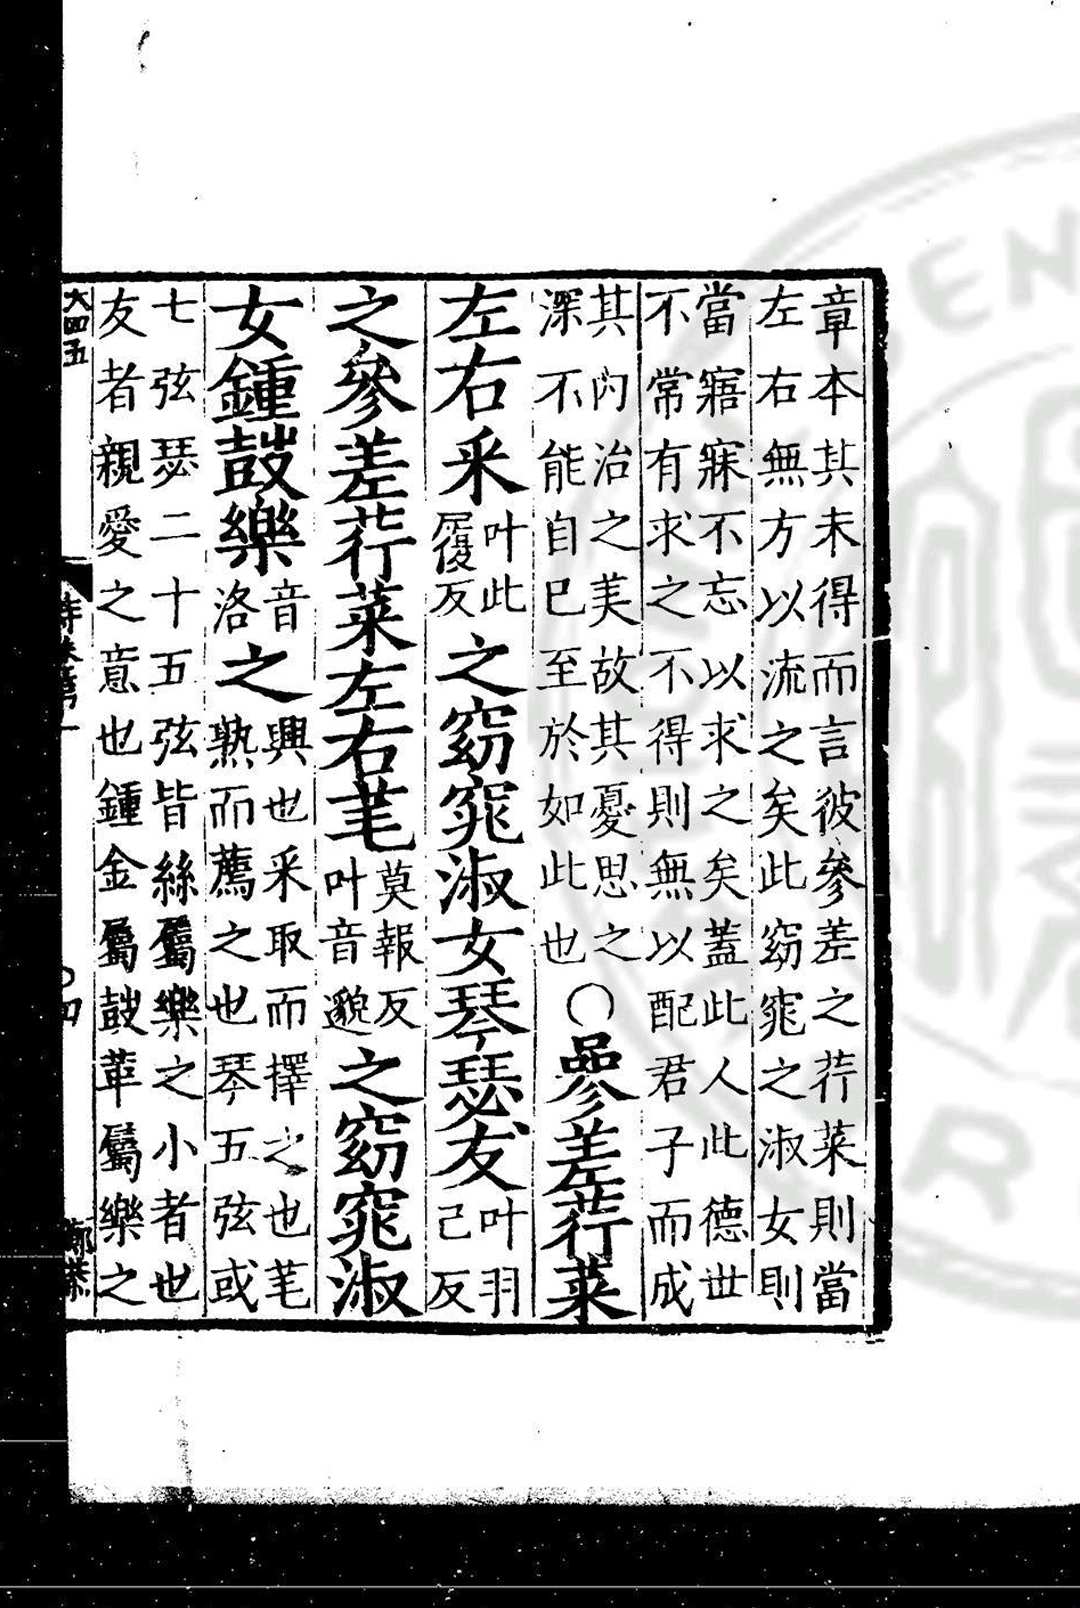 章本其未得而言彼參差之荇菜則當
左右無方以流之矣此窈窕之淑女則
當寤寐不忘以求之矣蓋此人此德世
不常有求之不得則無以配君子而成
其內治之美故其憂思之
深不能自已至於如此也
○參差荇菜
左右采
叶此
履反
之窈窕淑女琴瑟友
叶羽
己反
之參差荇菜左右芼
莫報反
叶音邈
之窈窕淑
女鍾鼓樂
音
洛
之
興也采取而擇之也芼
熟而薦之也琴五弦或
七弦瑟二十五弦皆絲屬樂之小者也
友者親愛之意也鍾金屬鼓革屬樂之
大四五
四